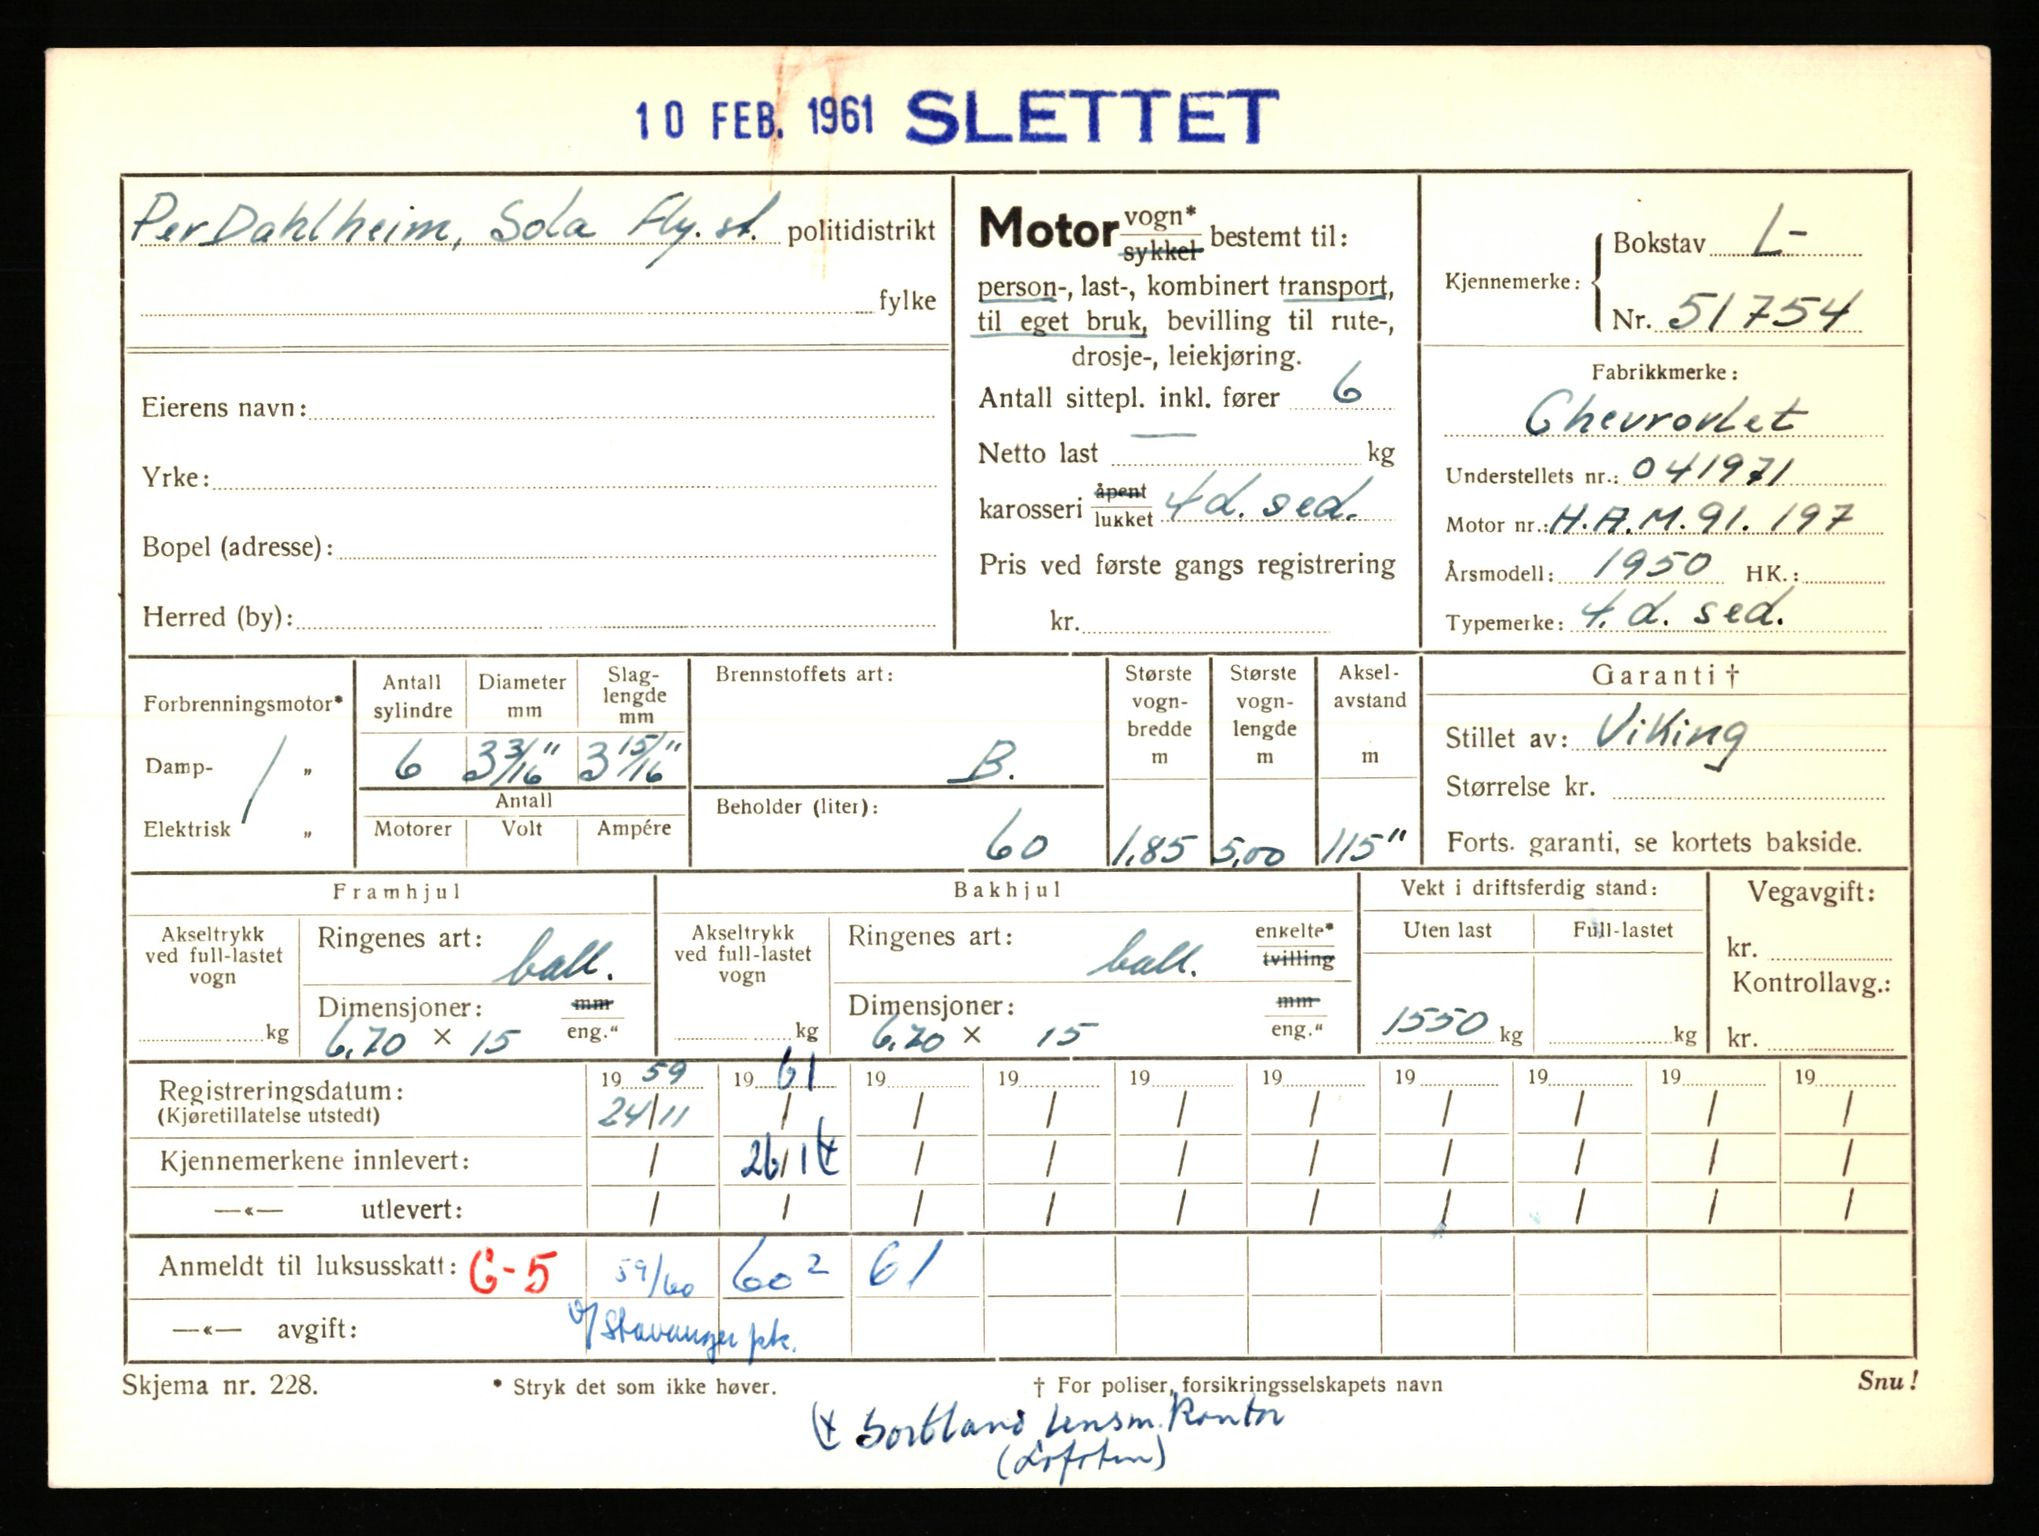 10 FEB. 1961 SLETTET
Per Dahlheim, Sola Fly.st. politidistrikt
fylke
Eierens navn:
Yrke:
Bopel (adresse):
Herred (by):
Motor vogn*
sykkel bestemt til:
person-, last-, kombinert transport,
til eget bruk, bevilling til rute-,
drosje-, leiekjøring.
Antall sittepl. inkl. fører 6
Netto last — kg
karosseri åpent
lukket 4 d. sed.
Pris ved første gangs registrering
kr.
Kjennemerke: Bokstav L-
Nr. 51754
Fabrikkmerke:
Chevrorlet
Understellets nr.: 041971
Motor nr.: H.A.M. 91. 197
Årsmodell: 1950 HK.:
Typemerke: 4. d. sed.
Forbrenningsmotor*
Damp- „
Elektrisk „
Antall sylindre
6
Diameter mm
3 3/16"
Slag-
lengde
mm
3 15/16"
Antall
Motorer Volt Ampére
Brennstoffets art:
B.
Beholder (liter):
60
Største
vogn-
bredde
m
1,85
Største
vogn-
lengde
m
5,00
Aksel-
avstand
m
115"
Garanti †
Stillet av: Viking
Størrelse kr.
Forts. garanti, se kortets bakside.
Framhjul
Akseltrykk
ved full-lastet
vogn
kg
Ringenes art:
ball.
Dimensjoner: mm
6,70 × 15 eng."
Bakhjul
Akseltrykk
ved full-lastet
vogn
kg
Ringenes art: enkelte*
ball. tvilling
Dimensjoner: mm
6,70 × 15 eng."
Vekt i driftsferdig stand:
Uten last Full-lastet
1550 kg kg
Vegavgift:
kr.
Kontrollavg.:
kr.
Registreringsdatum: 19 59 19 61 19 19 19 19 19 19 19 19
(Kjøretillatelse utstedt) 24/11 / / / / / / / / /
Kjennemerkene innlevert: / 26/1 / / / / / / / /
—«— utlevert: / / / / / / / / / /
Anmeldt til luksusskatt: G-5 59/60 60 2 61
—«— avgift: v/ Stavanger pk.
Skjema nr. 228. * Stryk det som ikke høver. † For poliser, forsikringsselskapets navn Snu!
Sortland Lensm. Kontor
(Lofoten)